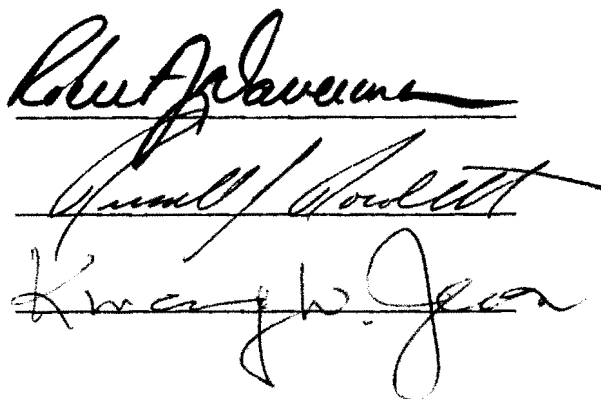 Robert J. Daverman
Russell J. Rowlett
Kwang W. Jeon